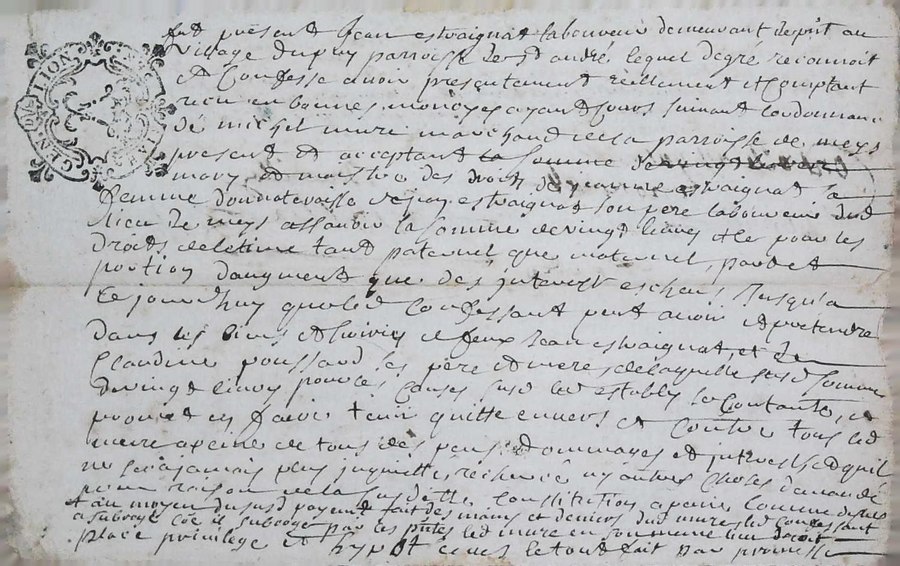 GEN. DE LION
fut présent Jean estvaignat laboureur demeurant depnt au
village du puy parroisse de st andré lequel degré reconnoit
et Confesse avoir presentement réellement et Comptant
receu en bonnes monoyes ayant Cours suivant Lordonnance
de michel mure marchand de la parroisse de meys
present et acceptant la somme
mary et maistre des droits de jeanne estvaignat sa
femme donnataresse de jean estvaignat son père laboureur dud
lieu de meys assavoir la somme de vingt livres et ce pour les
droits de letime tant paternel que maternel, part et
portion daugment que des jnterest escheus Jusqu'a
ce jourdhuy que led Confessant peut avoir et pretendre
dans les biens et hoiries de feux Jean estvaignat, et de
Claudine poussard ses père et mere de laquelle susd somme
de vingt livres pour les Causes susd led estably se Contante, et
promet en faire tenir quitte envers et Contre tous led
mure a peine de tous des pens dommages et jnterest sed quil
ne sera jamais plus jnquietté, recherché ny autre Chose demandé
pour raison de la susdette Constitution a peine Comme dessus
+ au moyen du susd payement fait des mains et deniers dud mure led Confessant
a subrogé Coe il subroge par ces pntes led mure en son lieu droit
place privilege et hypot eques le tout fait par promesse